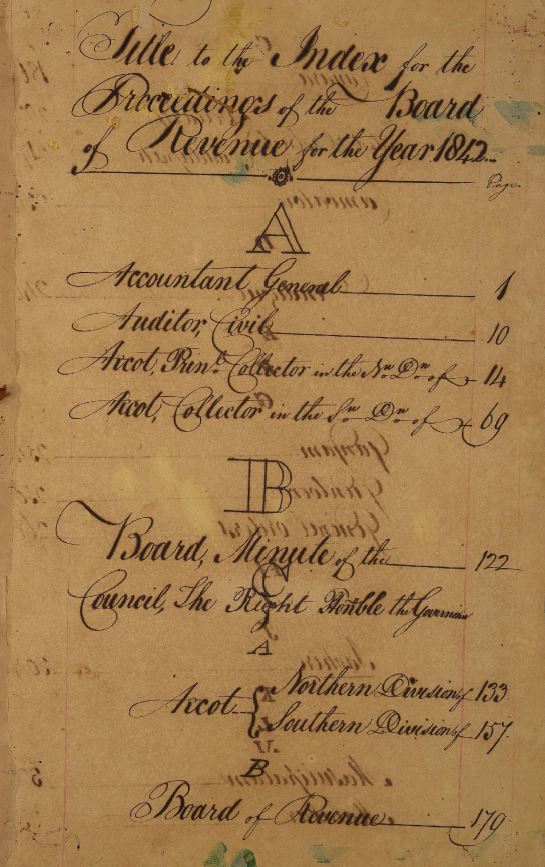 Title to the Index for the
Proceedings of the Board
of Revenue for the Year 1842
Page
A
Accountant General 1
Auditor, Civil 10
Arcot, Prinl. Collector in the Nn. Dn. of 14
Arcot, Collector in the Sn. Dn. of 69
B
Board, Minute of the 122
C
Council, The Right Honble the Governor in
A
Arcot { Northern Division of 133
Southern Division of 157
B
Board of Revenue 179